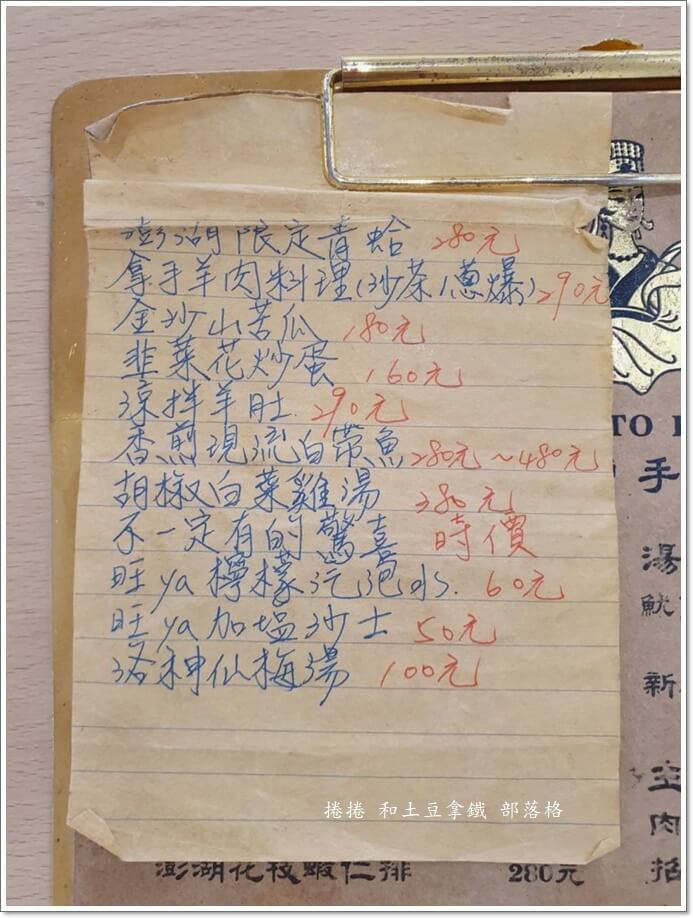 澎湖限定青蛤 280元
拿手羊肉料理(沙茶/蔥爆)290元
金沙山苦瓜 180元
韭菜花炒蛋 160元
涼拌羊肚. 290元
香煎現流白帶魚280元~480元
胡椒白菜雞湯 380元
不一定有的驚喜 時價
旺ya檸檬汽泡水. 60元
旺ya加塩沙士 50元
洛神仙梅湯 100元
TO
手
湯
魷
新
肉
招
捲捲 和土豆拿鐵 部落格
澎湖花枝蝦仁排 280元